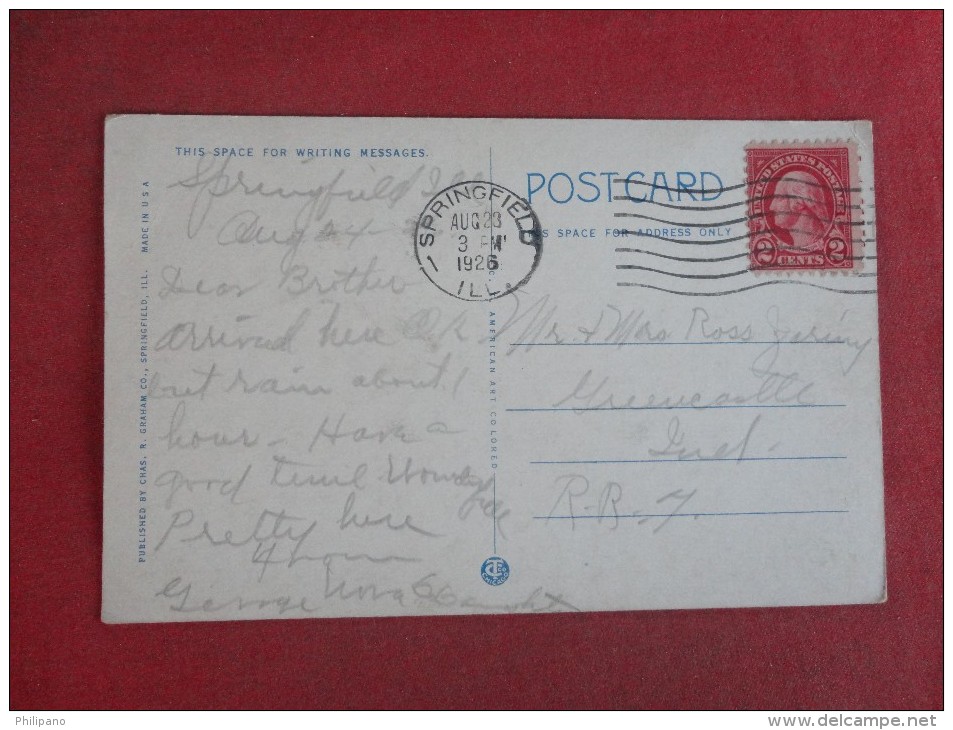 THIS SPACE FOR WRITING MESSAGES.
Springfield Ill
Aug 24
Dear Brother
arrived here O.K
but rain about 1
hour - Have a
good time
Pretty here
George
PUBLISHED BY CHAS. R. GRAHAM CO., SPRINGFIELD, ILL. MADE IN U S A
AMERICAN ART COLORED
CHICAGO
SPRINGFIELD
1
AUG 23
3 PM
1926
ILL.
POST CARD
THIS SPACE FOR ADDRESS ONLY
UNITED STATES POSTAGE
2 CENTS 2
Mr. & Mrs Ross
Greencastle
Ind.
Philipano
www.delcampe.net